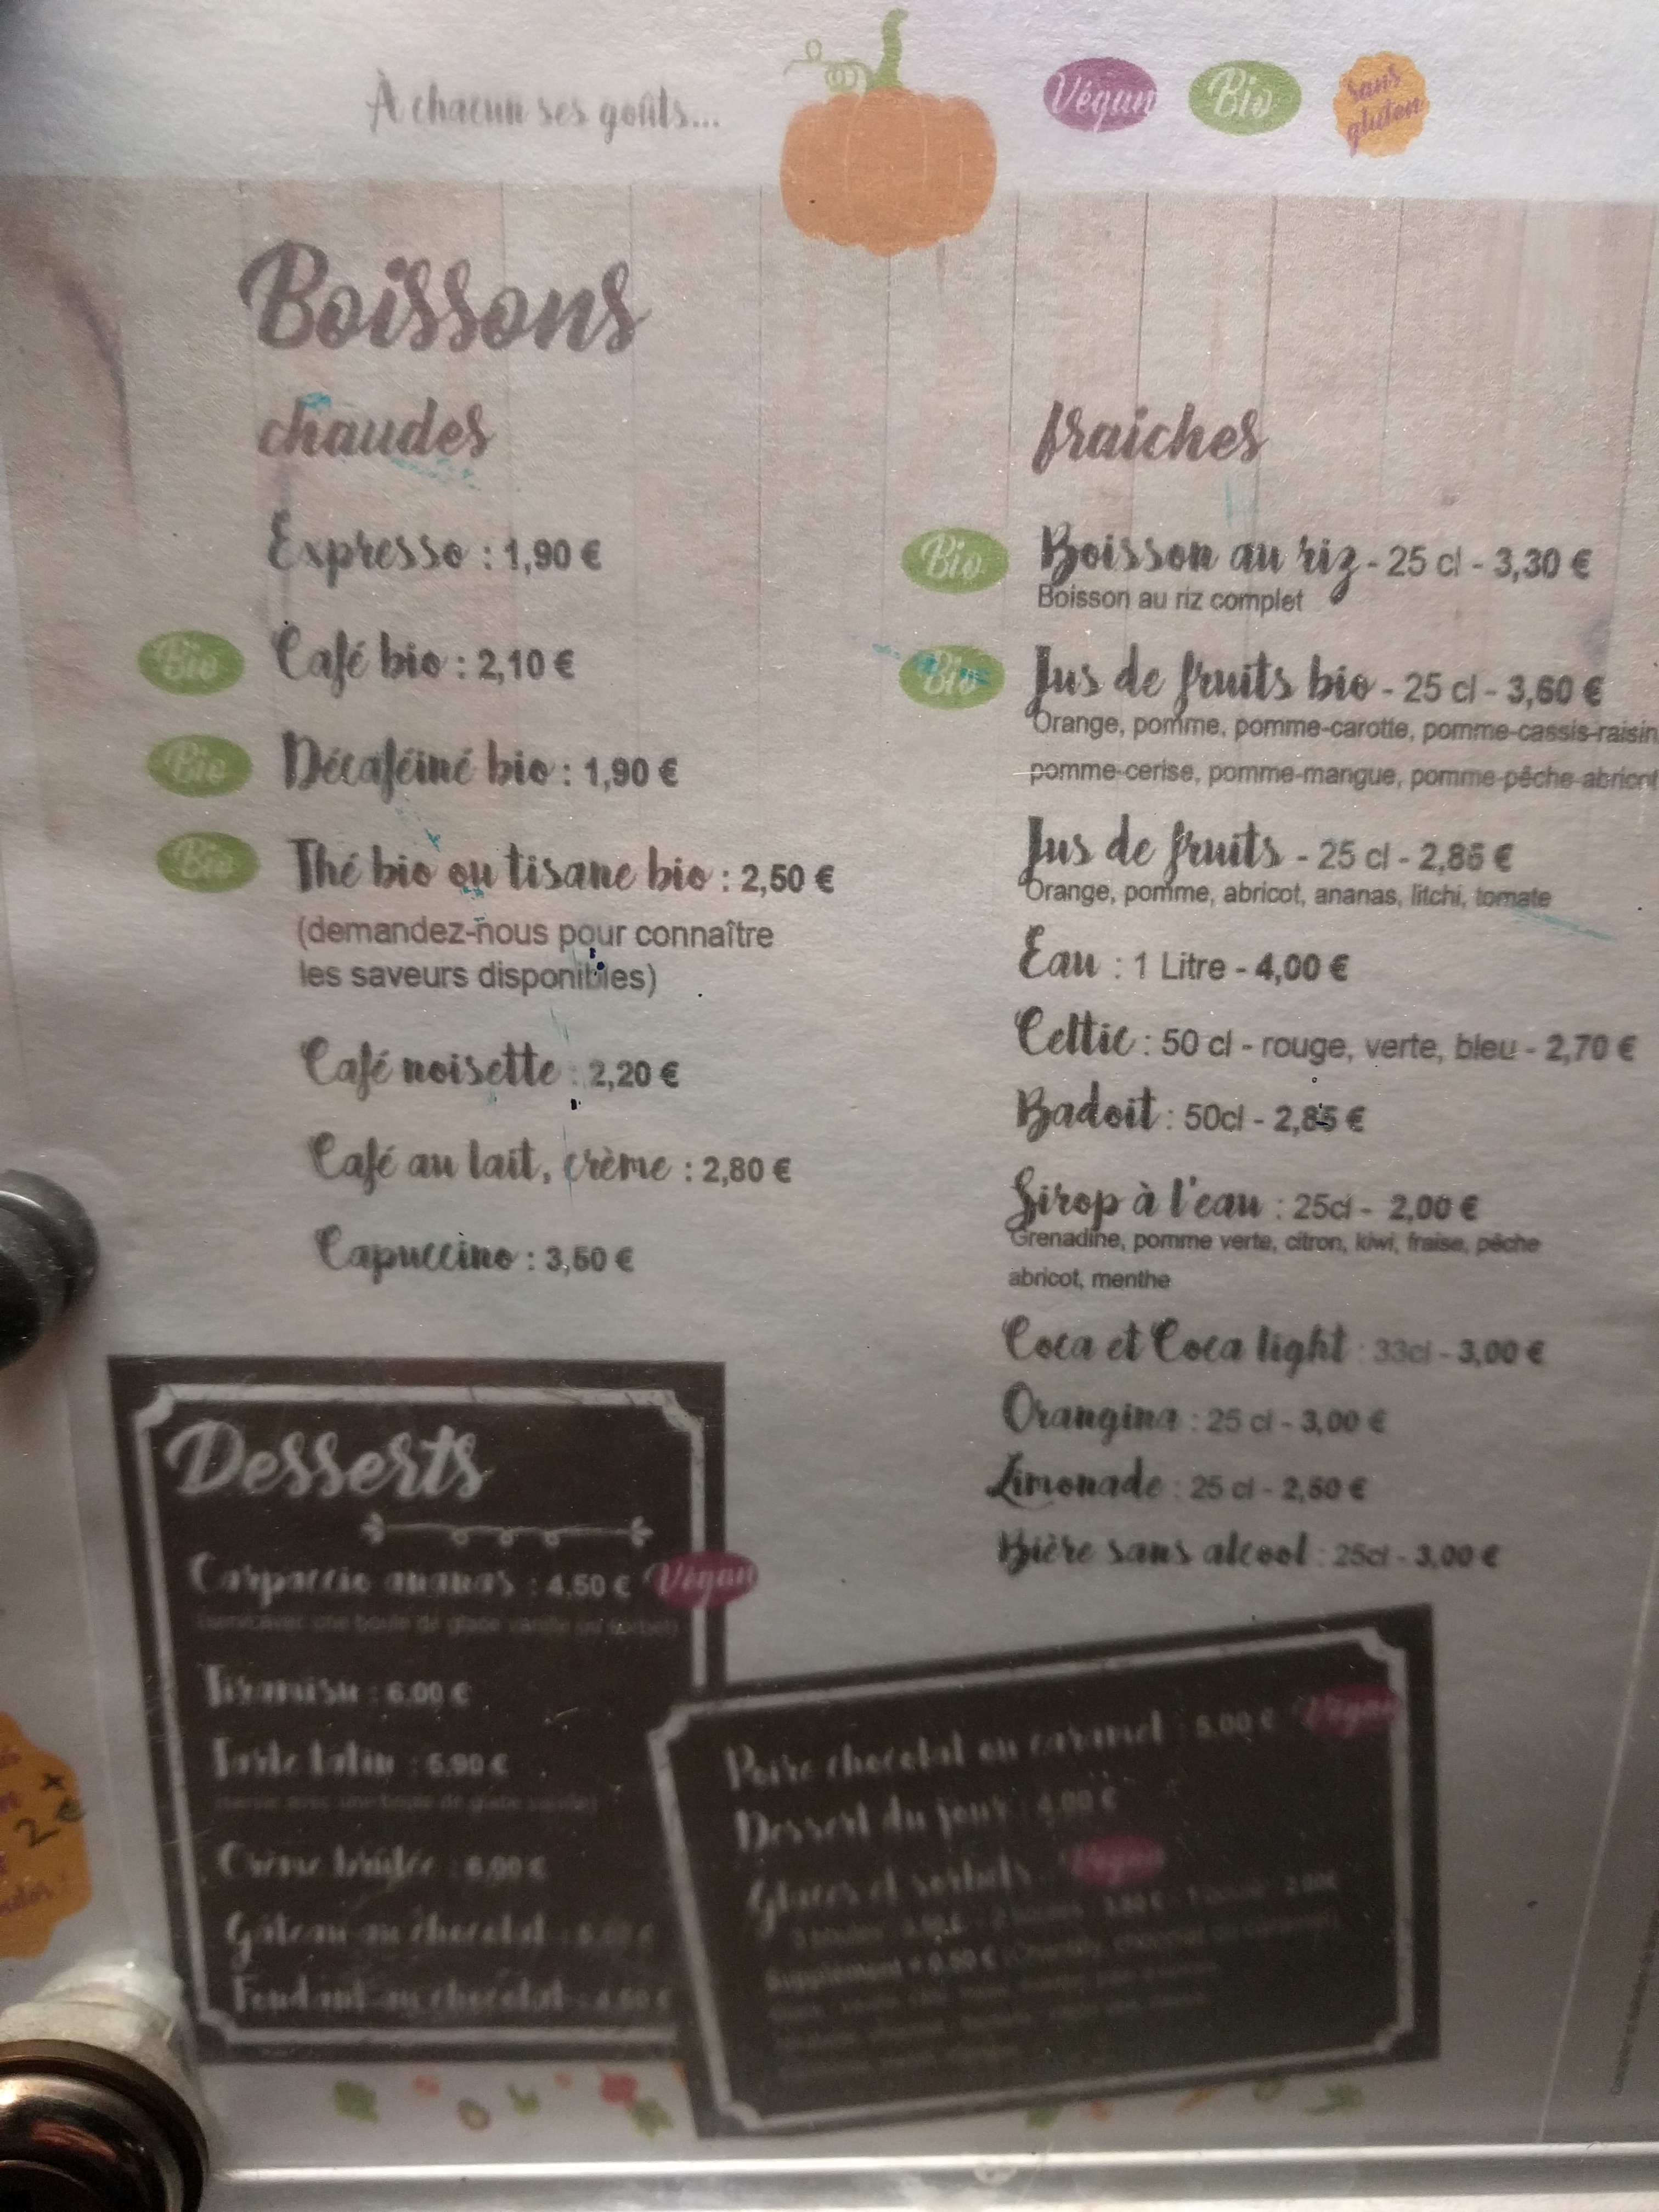 À chacun ses goûts...
Végan
Bio
sans
gluten
Boissons
chaudes
Expresso : 1,90 €
Bio
Café bio : 2,10 €
Bio
Décaféiné bio : 1,90 €
Bio
Thé bio ou tisane bio : 2,50 €
(demandez-nous pour connaître
les saveurs disponibles)
Café noisette : 2,20 €
Café au lait, crème : 2,80 €
Capuccino : 3,50 €
fraiches
Bio
Boisson au riz - 25 cl - 3,30 €
Boisson au riz complet
Bio
Jus de fruits bio - 25 cl - 3,60 €
Orange, pomme, pomme-carotte, pomme-cassis-raisin
pomme-cerise, pomme-mangue, pomme-pêche-abricot
Jus de fruits - 25 cl - 2,85 €
Orange, pomme, abricot, ananas, litchi, tomate
Eau : 1 Litre - 4,00 €
Celtic : 50 cl - rouge, verte, bleu - 2,70 €
Badoit : 50cl - 2,85 €
Sirop à l'eau : 25cl - 2,00 €
Grenadine, pomme verte, citron, kiwi, fraise, pêche
abricot, menthe
Coca et Coca light : 33cl - 3,00 €
Orangina : 25 cl - 3,00 €
Limonade : 25 cl - 2,50 €
Bière sans alcool : 25cl - 3,00 €
Desserts
Carpaccio ananas : 4.50 € Végan
(servi avec une boule de glace vanille ou sorbet)
Tiramisu : 6.00 €
Tarte tatin : 5.90 €
(servie avec une boule de glace vanille)
Crème brûlée : 6.00 €
Gâteau au chocolat :
Fondant au chocolat : 4.50 €
Poire chocolat ou caramel : 5.00 € Végan
Dessert du jour : 4.00 €
Glaces et sorbets Végan
Supplément + 0.50 € (Chantilly, chocolat ou caramel)
2€